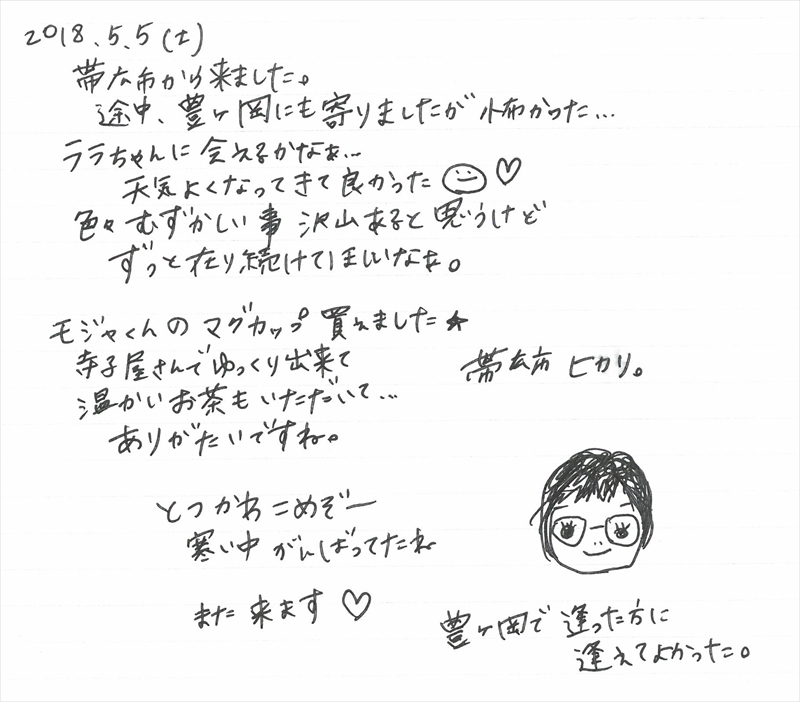 2018.5.5(土)
帯広市から来ました。
途中、豊ヶ岡にも寄りましたが 怖かった…
ララちゃんに 会えるかなぁ…
天気よくなってきて良かった
色々むずかしい事 沢山あると思うけど
ずっと在り続けてほしいなぁ。
モジャくんの マグカップ 買えました☆
寺子屋さんでゆっくり出来て
温かいお茶もいただいて…
ありがたいですね。
帯広市 ヒカリ。
とつかわこめぞー
寒い中 がんばってたね
また来ます♡
豊ヶ岡で 逢った方に
逢えてよかった。